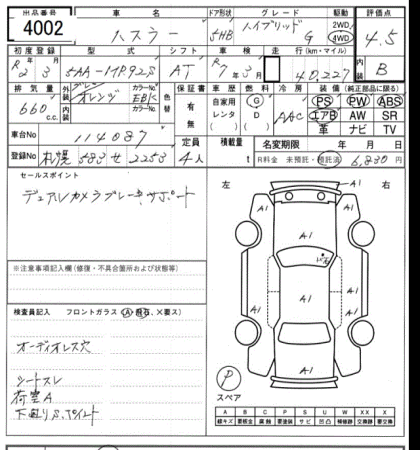 出品番号 車名 ドア形状 グレード 駆動 評価点
4002 ハスラー 5HB ハイブリッド G 2WD 4WD 4.5
初度登録 型式 シフト 車検 走行(km・マイル) 内装
R2 3 5AA-MR92S AT R7年3月 40,227 B
排気量 外装 カラーNo. 色替 保証書 車歴 燃料 冷房 装備(純正部品に限る)
660 c.c. オレンジ EBK 有 無 自家用 レンタ G D AAC PS PW ABS
エアB AW SR
革 ナビ TV
車台No 114087 定員 積載量 名変期限 年 月 日
登録No 札幌 583 せ 2253 4人 t R料金 未預託・預託済 6,830円
セールスポイント
デュアルカメラブレーキサポート
左 右
A1 A1
A1
A1 A1
A1
A1 A1
A1
※注意事項記入欄(修復・不具合箇所および状態等)
検査員記入 フロントガラス(A・飛石、×要ス)
オーディオレス穴
シートスレ
荷室A
下廻りS.ペイント
P
スペア
A B C P S U W X XX
線キズ 要板金 腐蝕 要塗装 サビ 凹凸 補修跡 要交換